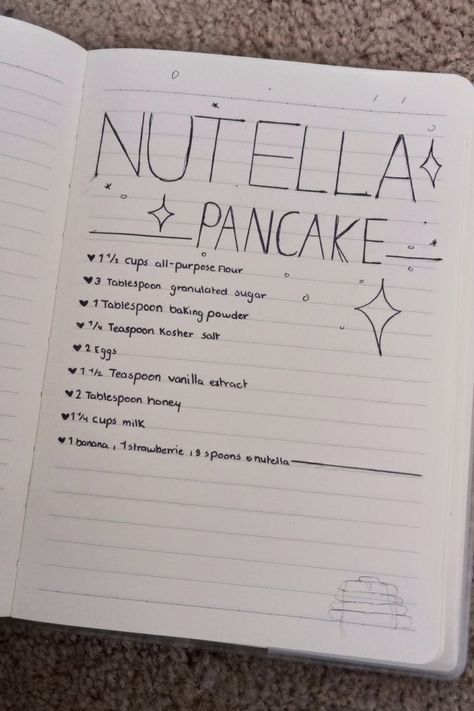 NUTELLA
PANCAKE
♥ 1 1/2 cups all-purpose flour
♥ 3 Tablespoon granulated sugar
♥ 1 Tablespoon baking powder
♥ 1/4 Teaspoon Kosher salt
♥ 2 Eggs
♥ 1 1/2 Teaspoon vanilla extract
♥ 2 Tablespoon honey
♥ 1 1/4 cups milk
♥ 1 banana, 1 strawberrie, 8 spoons nutella